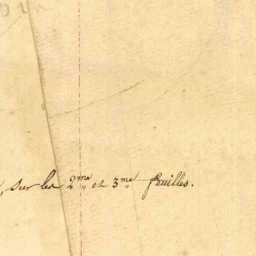 , sur les 2.me et 3.me feuilles.